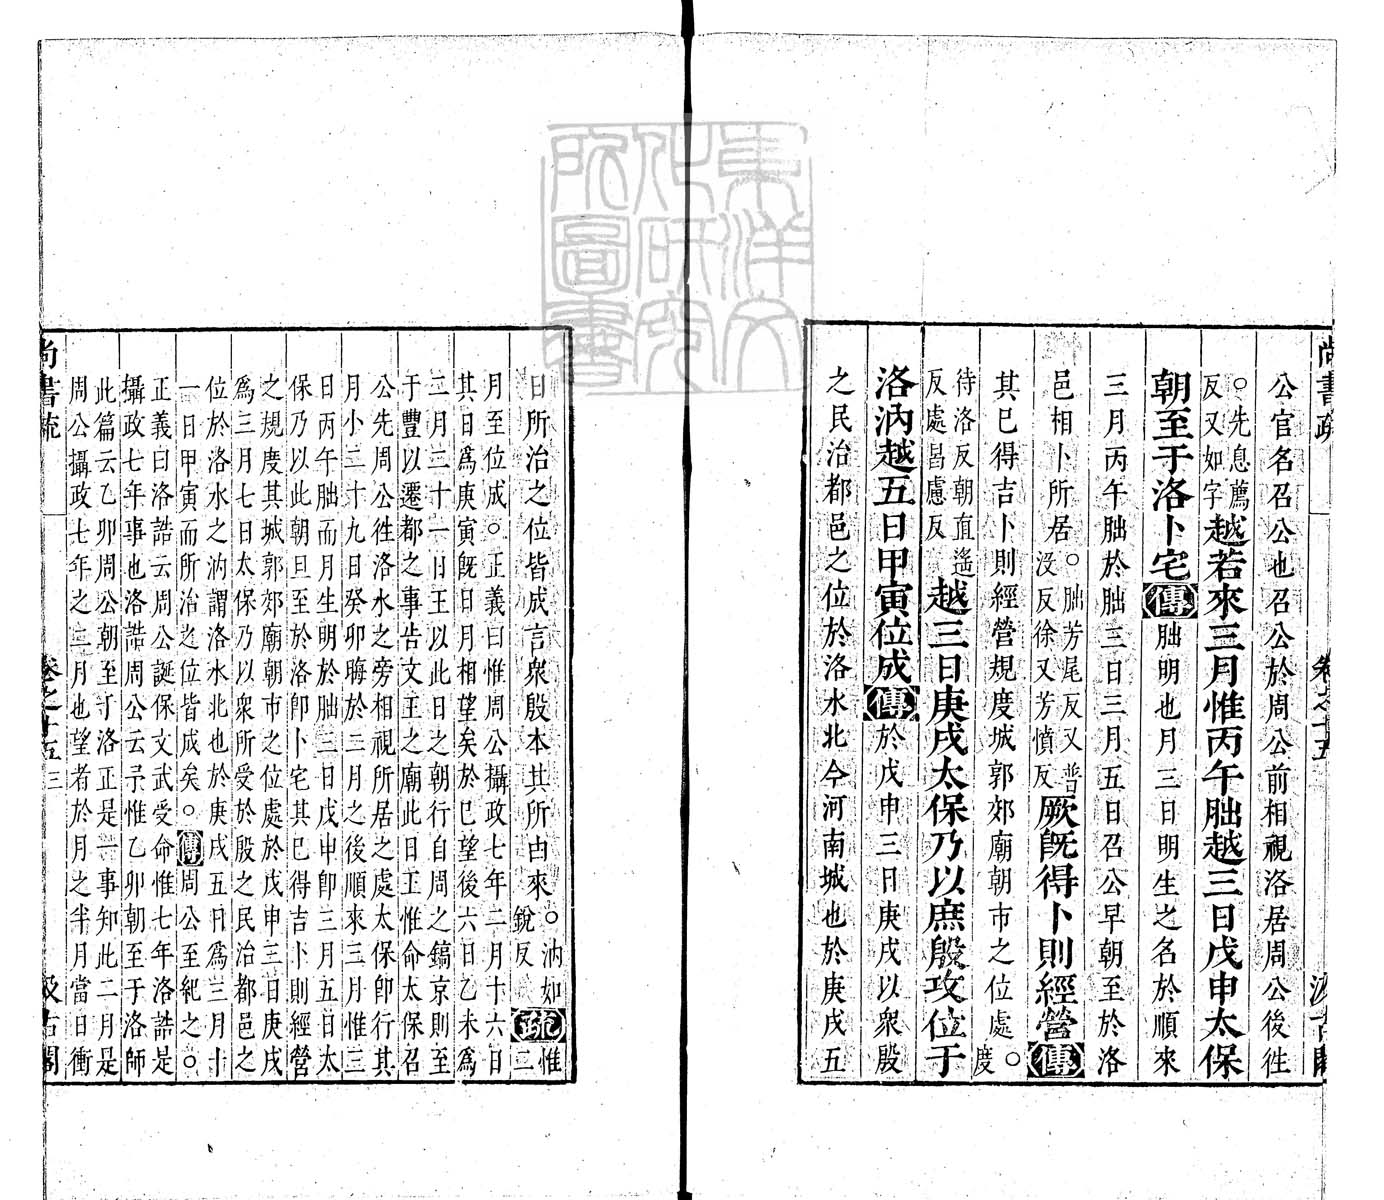 尚書疏
卷之十五
汲古閣
公官名召公也召公於周公前相視洛居周公後徃
○先息薦反又如字越若來三月惟丙午朏越三日戊申太保
朝至于洛卜宅傳朏明也月三日明生之名於順來
三月丙午朏於朏三日三月五日召公早朝至於洛
邑相卜所居○朏芳尾反又普沒反徐又芳憤反厥旣得卜則經營傳
其已得吉卜則經營規度城郭郊廟朝市之位處○度
待洛反朝直遙反處昌慮反越三日庚戌太保乃以庶殷攻位于
洛汭越五日甲寅位成傳於戊申三日庚戌以衆殷
之民治都邑之位於洛水北今河南城也於庚戌五
日所治之位皆成言衆殷本其所由來○汭如銳反疏惟二
月至位成○正義曰惟周公攝政七年二月十六日
其日爲庚寅旣日月相望矣於已望後六日乙未爲
二月二十一日王以此日之朝行自周之鎬京則至
于豐以遷都之事告文王之廟此日王惟命太保召
公先周公徃洛水之旁相視所居之處太保卽行其
月小二十九日癸卯晦於二月之後順來三月惟三
日丙午朏而月生明於朏三日戊申卽三月五日太
保乃以此朝旦至於洛卽卜宅其已得吉卜則經營
之規度其城郭郊廟朝市之位處於戊申三日庚戌
爲三月七日太保乃以衆所受於殷之民治都邑之
位於洛水之汭謂洛水北也於庚戌五日爲三月十
一日甲寅而所治之位皆成矣○傳周公至紀之○
正義曰洛誥云周公誕保文武受命惟七年洛誥是
攝政七年事也洛誥周公云予惟乙卯朝至于洛師
此篇云乙卯周公朝至于洛正是一事知此二月是
周公攝政七年之二月也望者於月之半月當日衝
尚書疏
卷之十五
三
汲古閣
東洋文化研究所圖書